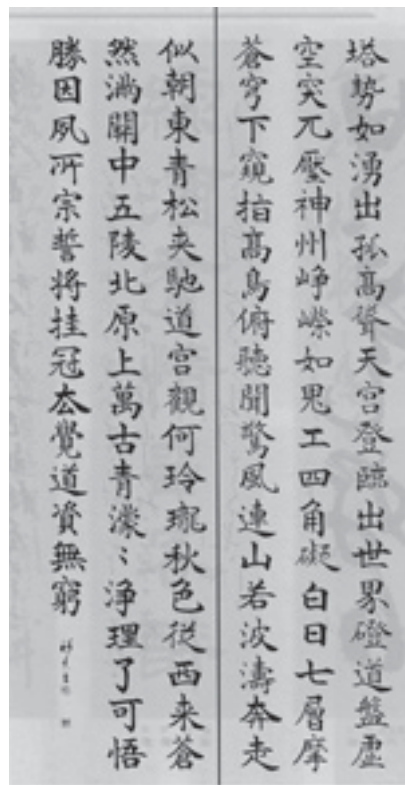 塔勢如湧出孤高聳天宮登臨出世界磴道盤虛
空突兀壓神州崢嶸如鬼工四角礙白日七層摩
蒼穹下窺指高鳥俯聽聞驚風連山若波濤奔走
似朝東青松夾馳道宮觀何玲瓏秋色從西来蒼
然滿關中五陵北原上萬古青濛〻淨理了可悟
勝因夙所宗誓將挂冠厺覺道資無窮